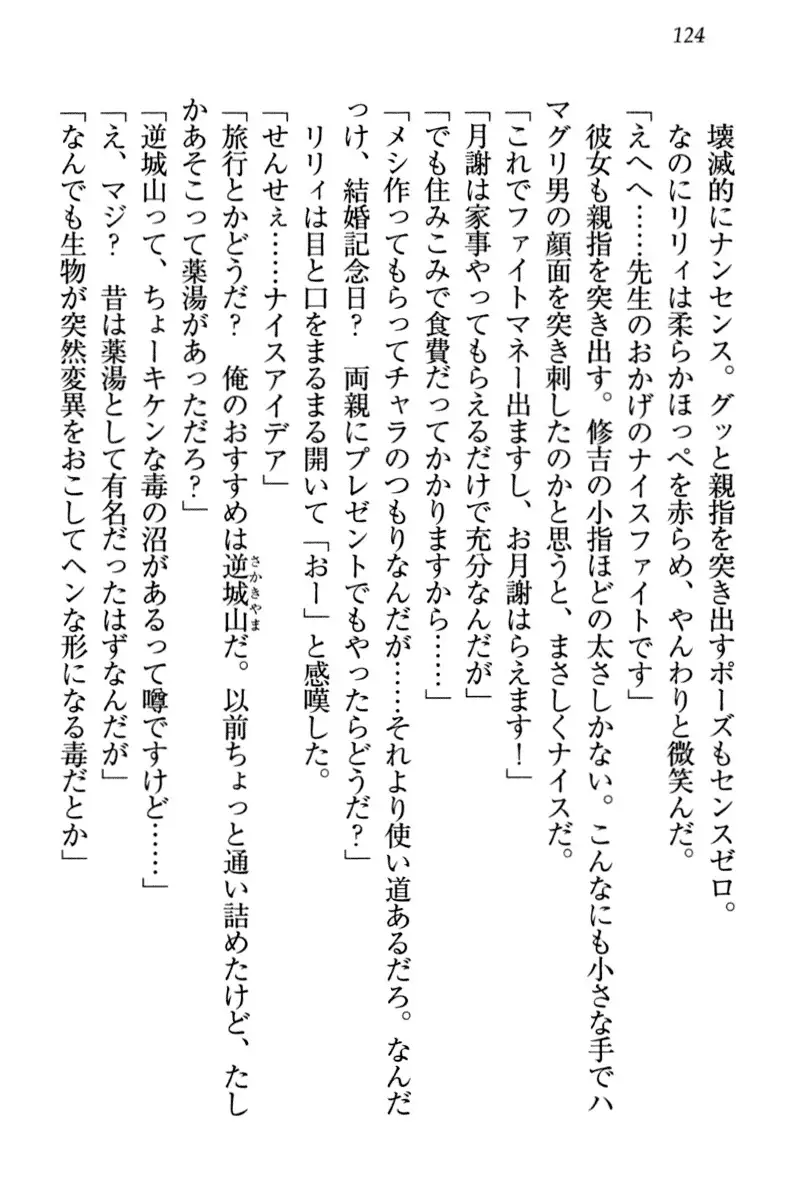 124
壊滅的にナンセンス。グッと親指を突き出すポーズもセンスゼロ。
なのにリリィは柔らかほっぺを赤らめ、やんわりと微笑んだ。
「えへへ……先生のおかげのナイスファイトです」
彼女も親指を突き出す。修吉の小指ほどの太さしかない。こんなにも小さな手でハ
マグリ男の顔面を突き刺したのかと思うと、まさしくナイスだ。
「これでファイトマネー出ますし、お月謝はらえます！」
「月謝は家事やってもらえるだけで充分なんだが」
「でも住みこみで食費だってかかりますから……」
「メシ作ってもらってチャラのつもりなんだが……それより使い道あるだろ。なんだ
っけ、結婚記念日？　両親にプレゼントでもやったらどうだ？」
リリィは目と口をまるまる開いて「おー」と感嘆した。
「せんせぇ……ナイスアイデア」
「旅行とかどうだ？　俺のおすすめは逆城山だ。以前ちょっと通い詰めたけど、たし
さかきやま
かあそこって薬湯があっただろ？」
「逆城山って、ちょーキケンな毒の沼があるって噂ですけど……」
「え、マジ？　昔は薬湯として有名だったはずなんだが」
「なんでも生物が突然変異をおこしてヘンな形になる毒だとか」